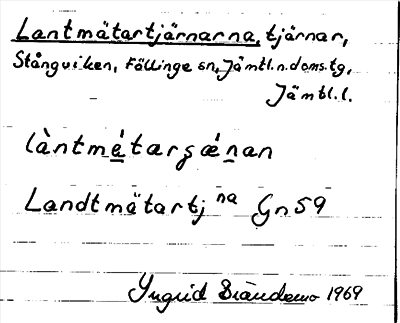 Lantmätartjärnarna, tjärnar,
Stångviken, Föllinge sn, Jämtl. n. doms. tg,
Jämtl. l.
làntmé̱tarʂǽṉan
Landtmätartj na Gn 59
Yngrid 1969